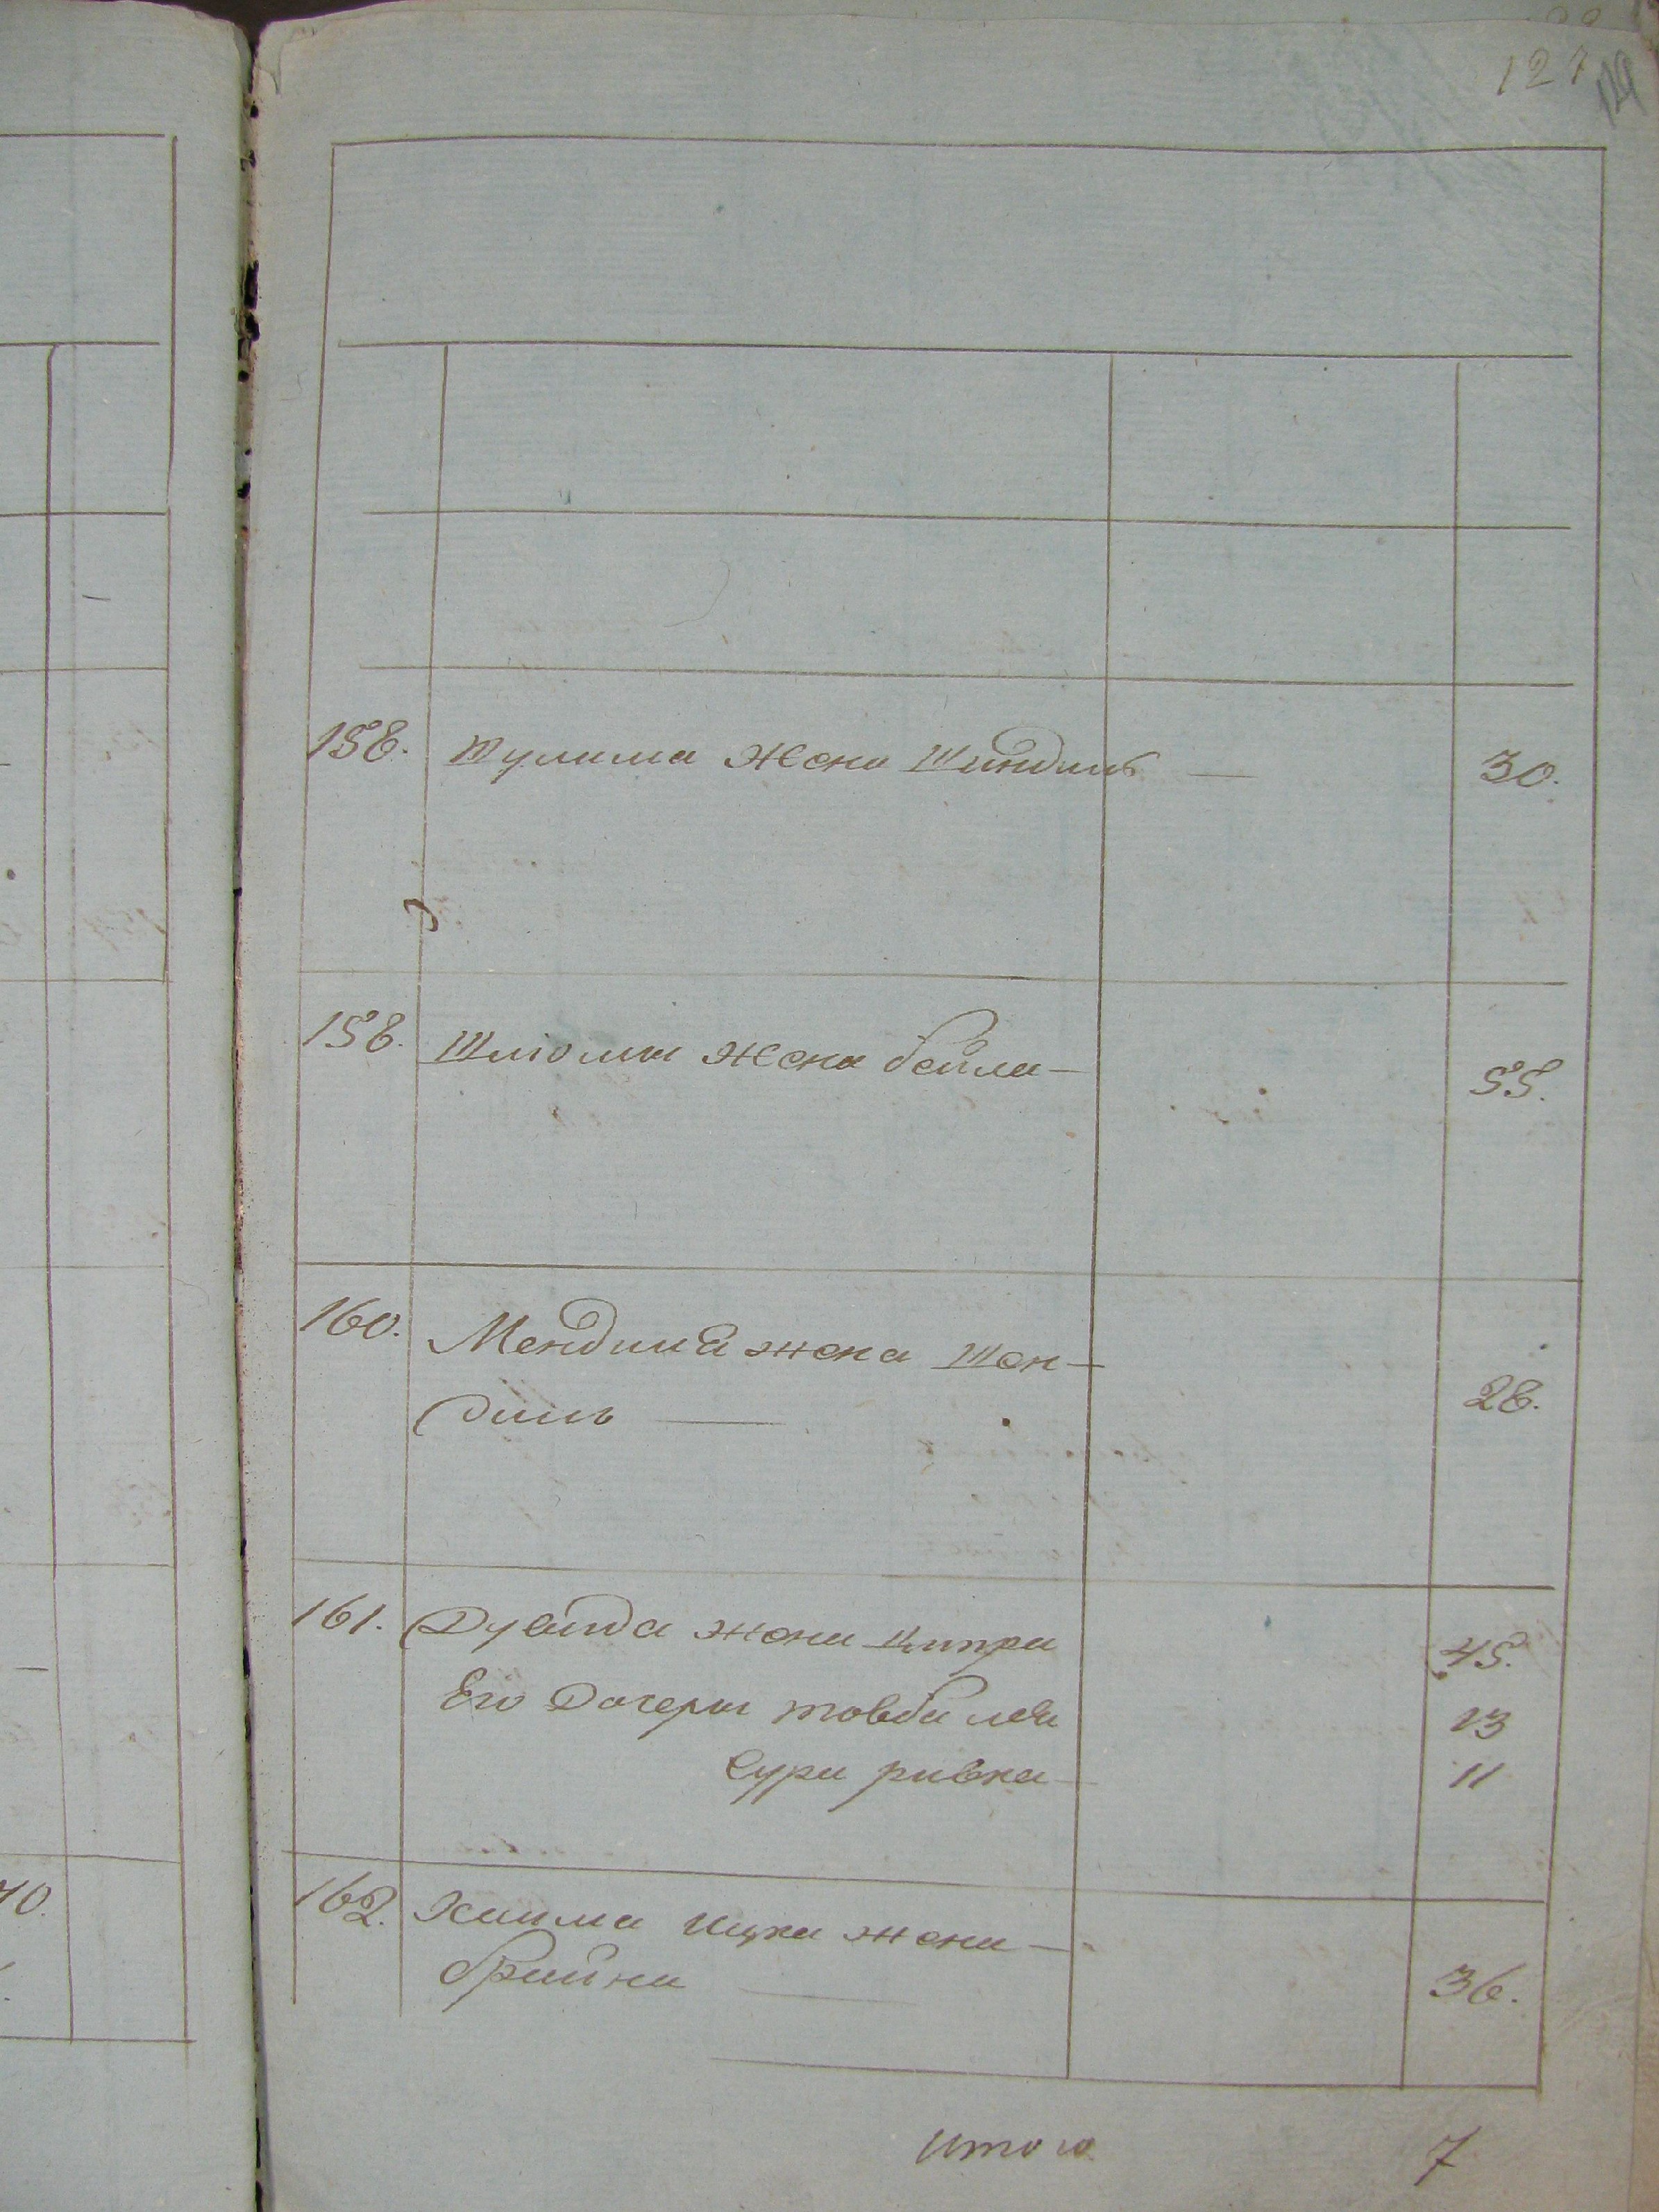 127
129
158. Шулима Жена Шиндиль — 30.
158. Шлиомы Жена бейла — 55.
160. Мендиля жена Шен-
диль — 28.
161. Дувида жена Ципра 45.
Его Дочеры товба лея 13
Сура ривка — 11
162. Хаима Ицка жена —
брайна — 36.
итого 7
40.